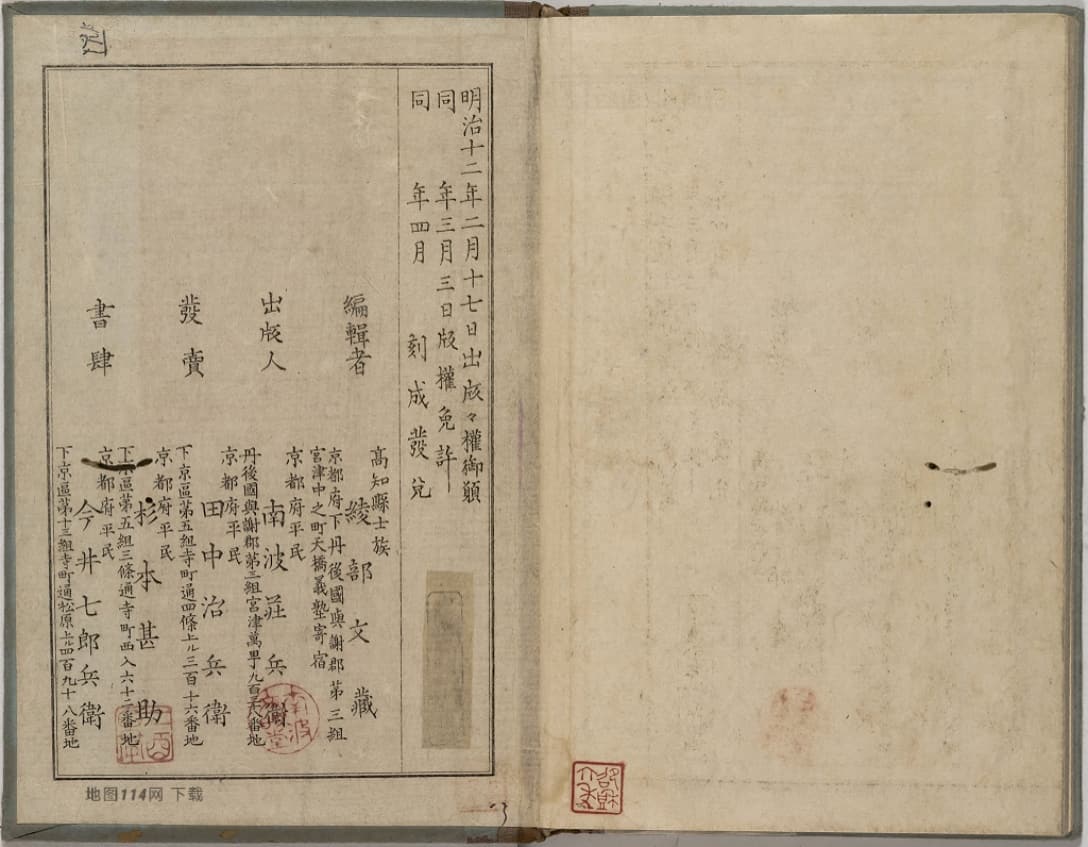 明治十二年二月十七日出版々權御願
同　年三月三日版權免許
同　年四月　刻成發兌
編輯者
高知縣士族
綾部文藏
京都府下丹後國與謝郡第三組
宮津中之町天橋義塾寄宿
出版人
京都府平民
南波莊兵衛
丹後國與謝郡第三組宮津萬町九百 番地
發賣
京都府平民
田中治兵衛
下京區第五組寺町通四條上ル三百十六番地
書肆
京都府平民
杉本甚助
上京區第五組三條通寺町西入六十二番地
京都府平民
今井七郎兵衛
下京區第十三組寺町通松原上ル四百九十八番地
南波
堂
地图114网 下载